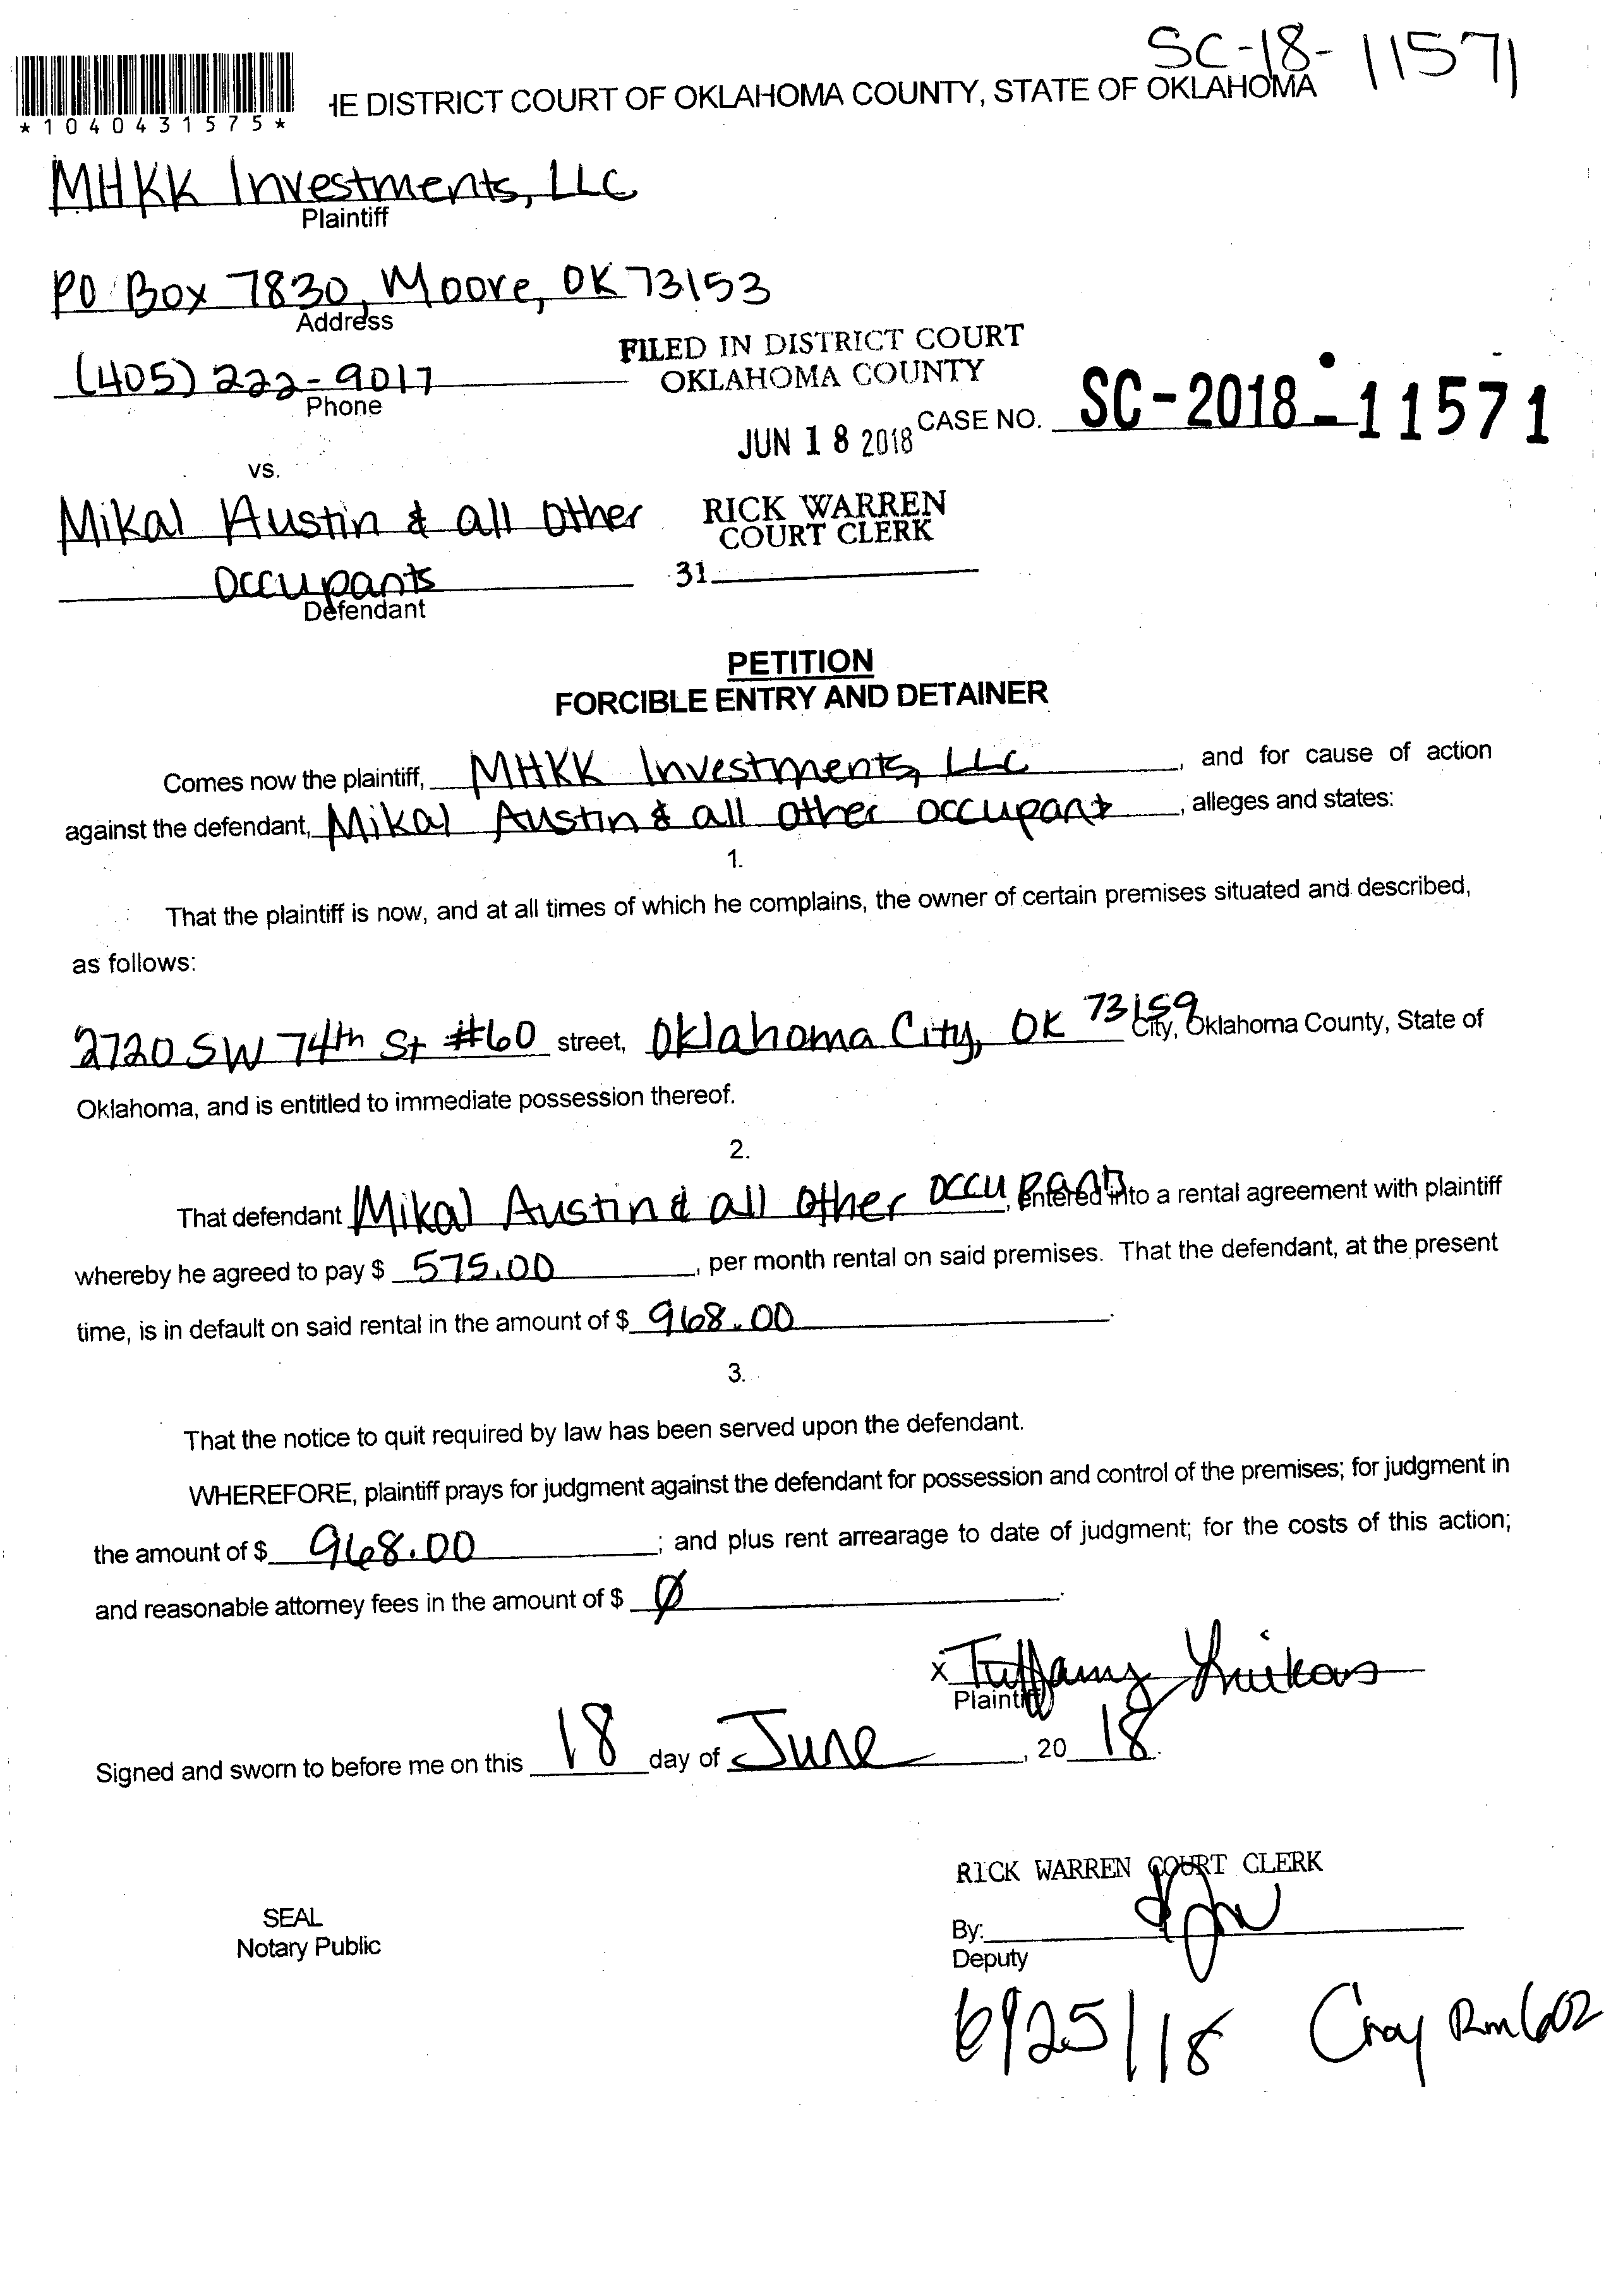 SC-18-11571
*1040431575*
HE DISTRICT COURT OF OKLAHOMA COUNTY, STATE OF OKLAHOMA
MHKK Investments, LLC
Plaintiff
PO Box 7830, Moore, OK 73153
Address
(405) 222-9017
Phone
FILED IN DISTRICT COURT
OKLAHOMA COUNTY
JUN 18 2018
CASE NO. SC-2018-11571
vs.
Mikal Austin & all other
occupants
Defendant
RICK WARREN
COURT CLERK
31
PETITION
FORCIBLE ENTRY AND DETAINER
Comes now the plaintiff, MHKK Investments, LLC, and for cause of action
against the defendant, Mikal Austin & all other occupant, alleges and states:
1.
That the plaintiff is now, and at all times of which he complains, the owner of certain premises situated and described,
as follows:
2720 SW 74th St #60 street, Oklahoma City, OK 73159 City, Oklahoma County, State of
Oklahoma, and is entitled to immediate possession thereof.
2.
That defendant Mikal Austin & all other occupants, entered into a rental agreement with plaintiff
whereby he agreed to pay $ 575.00, per month rental on said premises. That the defendant, at the present
time, is in default on said rental in the amount of $ 968.00.
3.
That the notice to quit required by law has been served upon the defendant.
WHEREFORE, plaintiff prays for judgment against the defendant for possession and control of the premises; for judgment in
the amount of $ 968.00; and plus rent arrearage to date of judgment; for the costs of this action;
and reasonable attorney fees in the amount of $ Ø.
x Tiffamy
Plaintiff
Signed and sworn to before me on this 18 day of June, 2018.
RICK WARREN COURT CLERK
SEAL
Notary Public
By:
Deputy
6/25/18 Rm 602